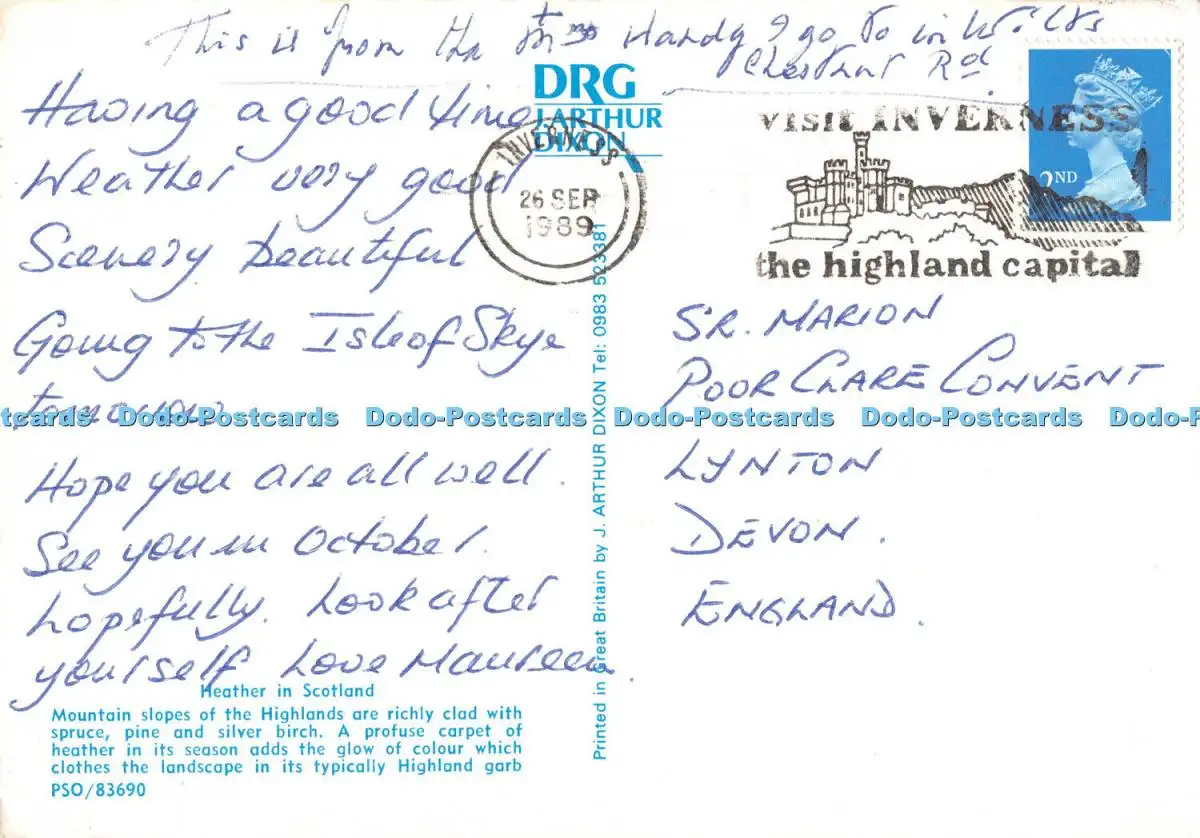 This is from the Mrs Handy I go to in Wilts
Chestnut Rd
DRG
J. ARTHUR
DIXON
Having a good time
Weather very good
Scenery beautiful
Going to the Isle of Skye
tomorrow
Hope you are all well.
See you in October.
hopefully. Look after
yourself Love Maureen.
INVERNESS
26 SEP
1989
visit INVERNESS
the highland capital
2ND
SR. MARION
POOR CLARE CONVENT
LYNTON
DEVON.
ENGLAND.
Dodo-Postcards Dodo-Postcards Dodo-Postcards Dodo-Postcards
Printed in Great Britain by J. ARTHUR DIXON Tel: 0983 523381
Heather in Scotland
Mountain slopes of the Highlands are richly clad with
spruce, pine and silver birch. A profuse carpet of
heather in its season adds the glow of colour which
clothes the landscape in its typically Highland garb
PSO/83690